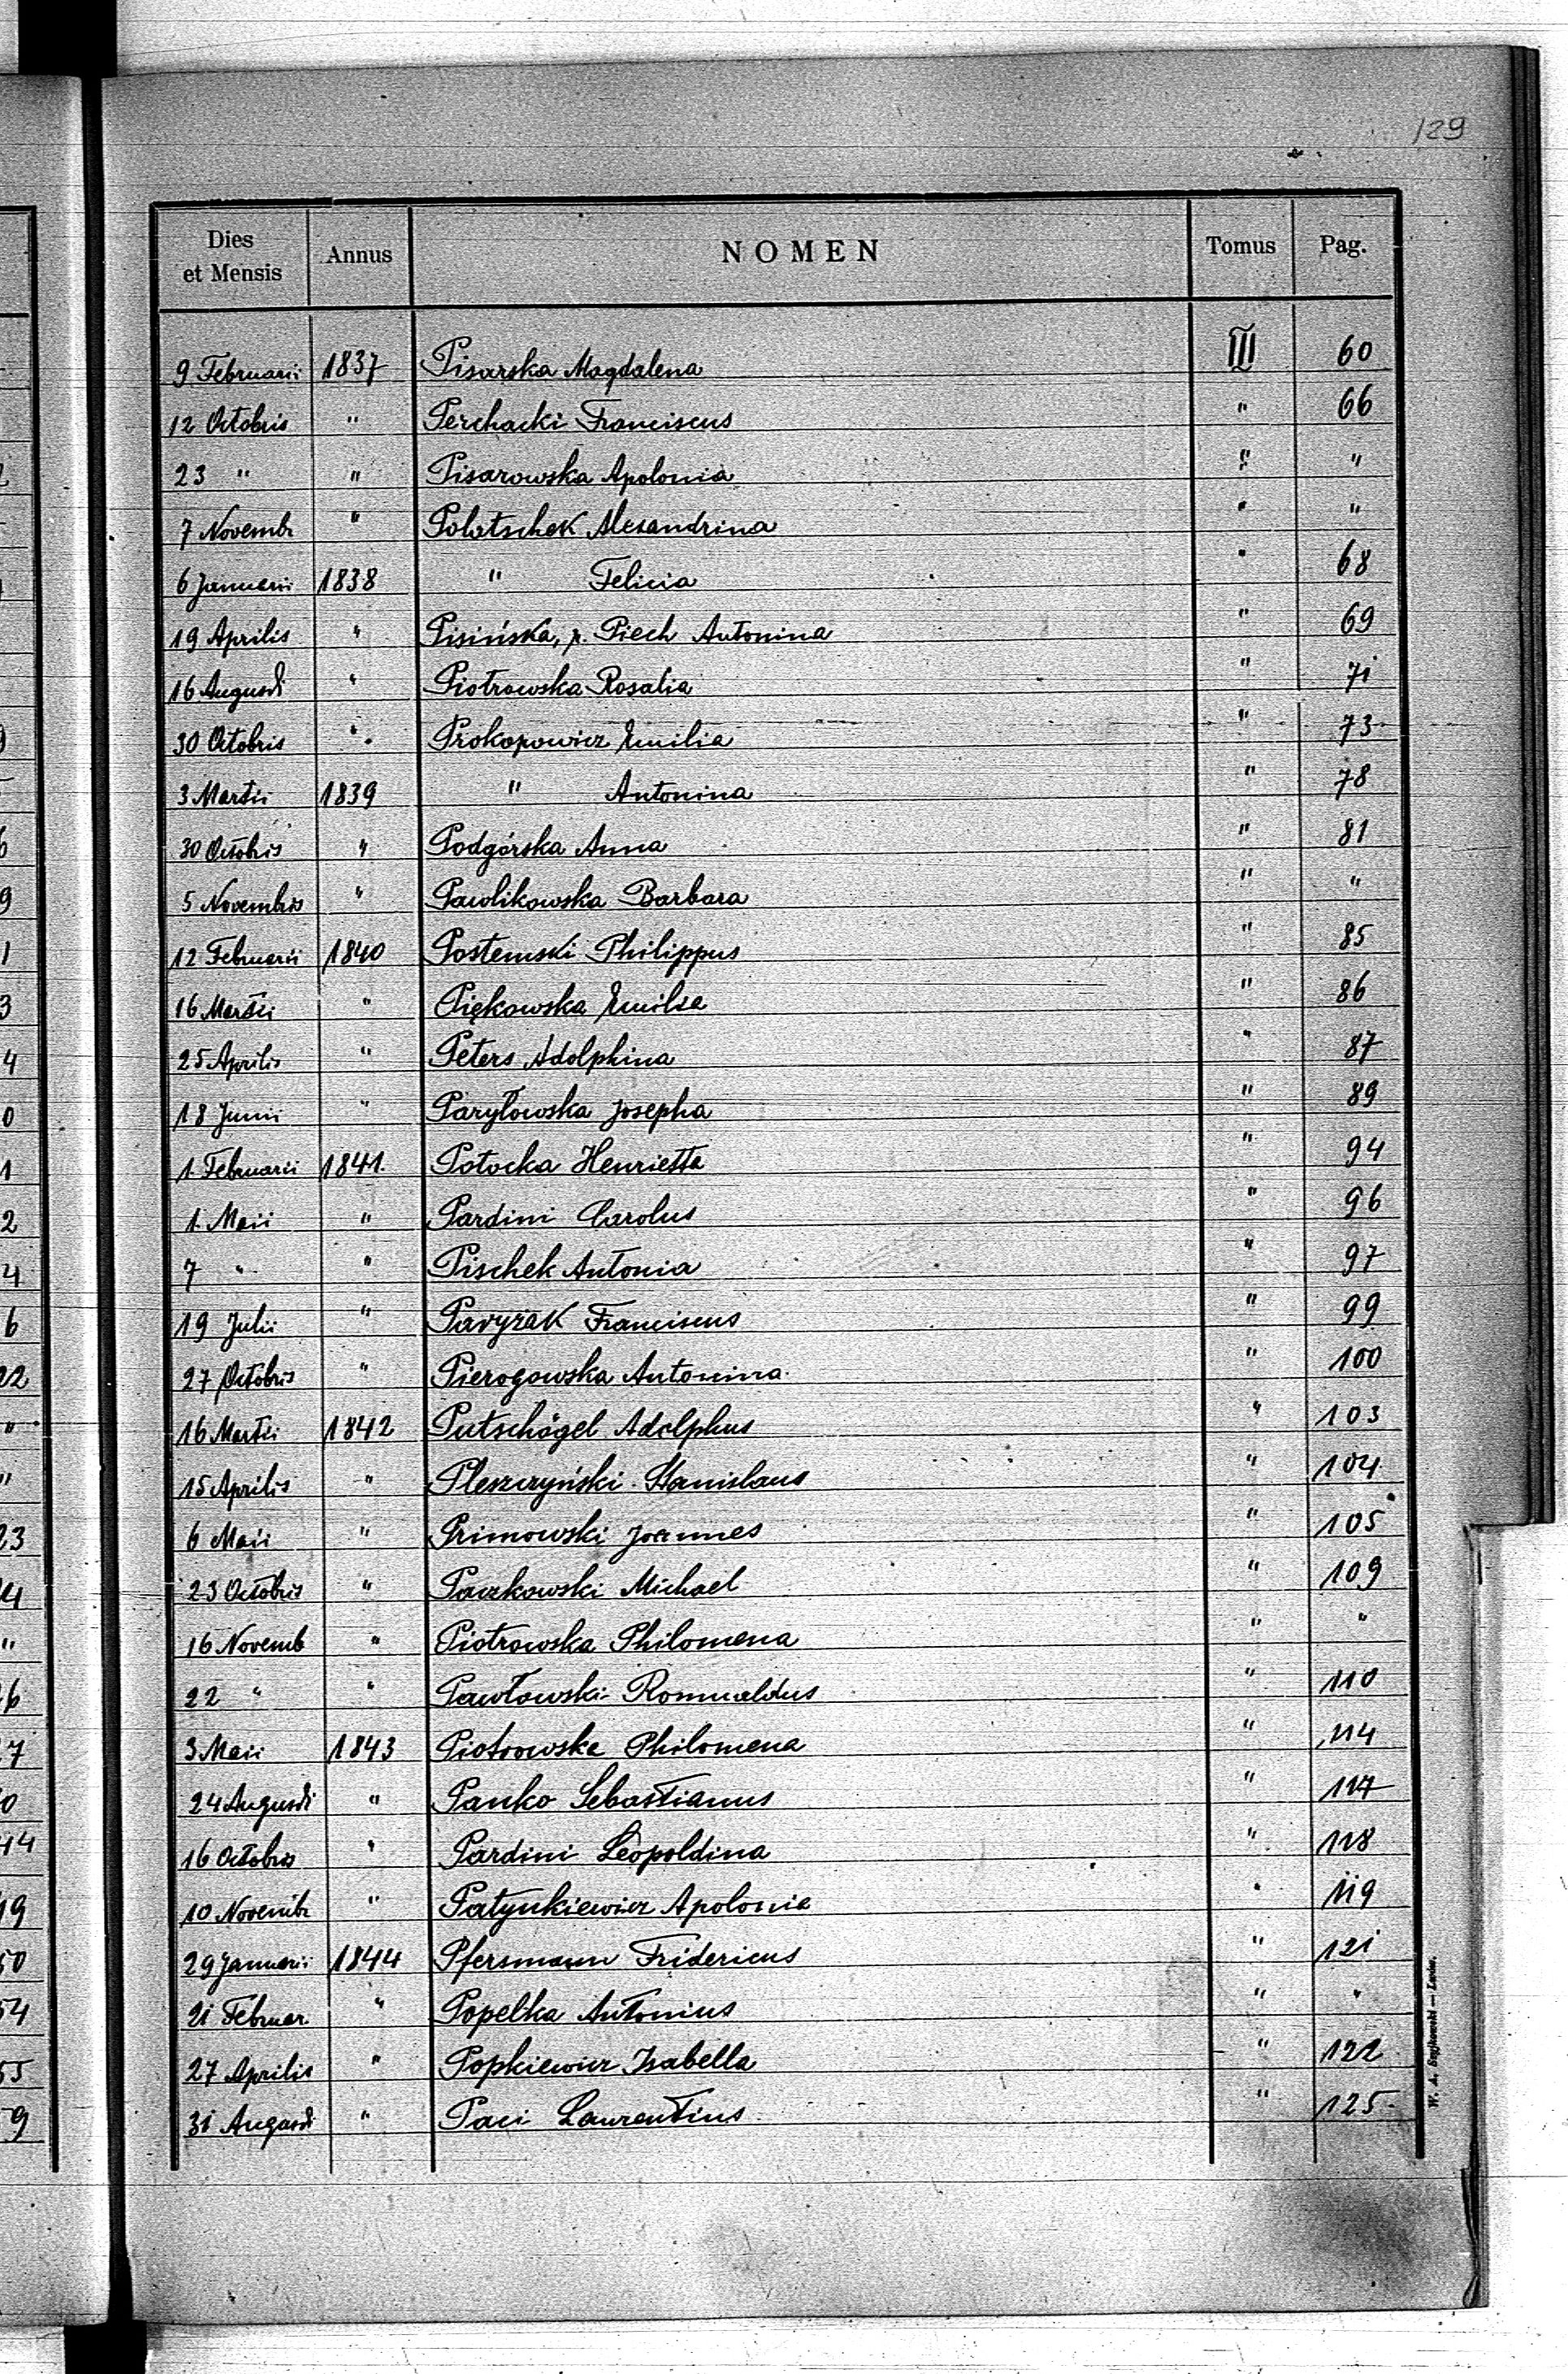 129
Dies et Mensis Annus NOMEN Tomus Pag.
9 Februarii 1837 Pisarska Magdalena III 60
12 Octobris " Perchacki Franciscus " 66
23 " " Pisarowska Apolonia " "
7 Novembr " Polotschek Alexandrina " "
6 Januarii 1838 " Felicia " 68
19 Aprilis " Pisińska, p. Piech Antonina " 69
16 Augusti " Piotrowska Rosalia " 71
30 Octobris " Prokopowicz Emilia " 73
3 Martii 1839 " Antonina " 78
30 Octobris " Podgórska Anna " 81
5 Novembris " Pawlikowska Barbara " "
12 Februarii 1840 Postemski Philippus " 85
16 Martii " Piękowska Emilia " 86
25 Aprilis " Peters Adolphina " 87
18 Junii " Paryłowska Josepha " 89
1 Februarii 1841 Potocka Henrietta " 94
1 Maii " Pardini Carolus " 96
7 " " Pischek Antonia " 97
19 Julii " Franciscus " 99
27 Octobris " Pierogowska Antonina " 100
16 Martii 1842 Putschögel Adolphus " 103
15 Aprilis " Pleszczyński Stanislaus " 104
6 Maii " Primowski Joannes " 105
23 Octobris " Paczkowski Michael " 109
16 Novemb " Piotrowska Philomena " "
22 " " Pawłowski Romualdus " 110
3 Maii 1843 Piotrowska Philomena " 114
24 Augusti " Panko Sebastianus " 117
16 Octobris " Pardini Leopoldina " 118
10 Novembr " Patynkiewicz Apolonia " 119
29 Januarii 1844 Pfersmann Fridericus " 121
21 Februar. " Popelka Antonius " "
27 Aprilis " Popkiewicz Isabella " 122
31 Augusti " Paci Laurentius " 125